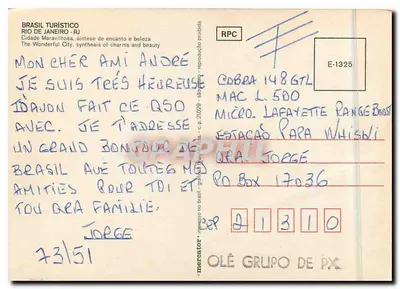 BRASIL TURÍSTICO
RIO DE JANEIRO - RJ
Cidade Maravilhosa, síntese de encanto e beleza
The Wonderful City, synthesis of charms and beauty
MON CHER AMI ANDRÉ
JE SUIS TRÉS HEUREUSE
DAVON FAIT CE QSO
AVEC. JE T'ADRESSE
UN GRAND BONJOUR DE
BRASIL AUE TOUTES MES
AMITIES POUR TOI ET
TOU QRA FAMILIE.
JORGE
73/51
"mercator"
reprodução proibida
RPC
E-1325
COBRA 148 GTL
MAC L. 500
MICRO. LAFAYETTE RANGE BOOST
ESTAÇÃO PAPA WHISKI
QRA. JORGE
PO BOX 17036
CEP 21310
OLÉ GRUPO DE PX